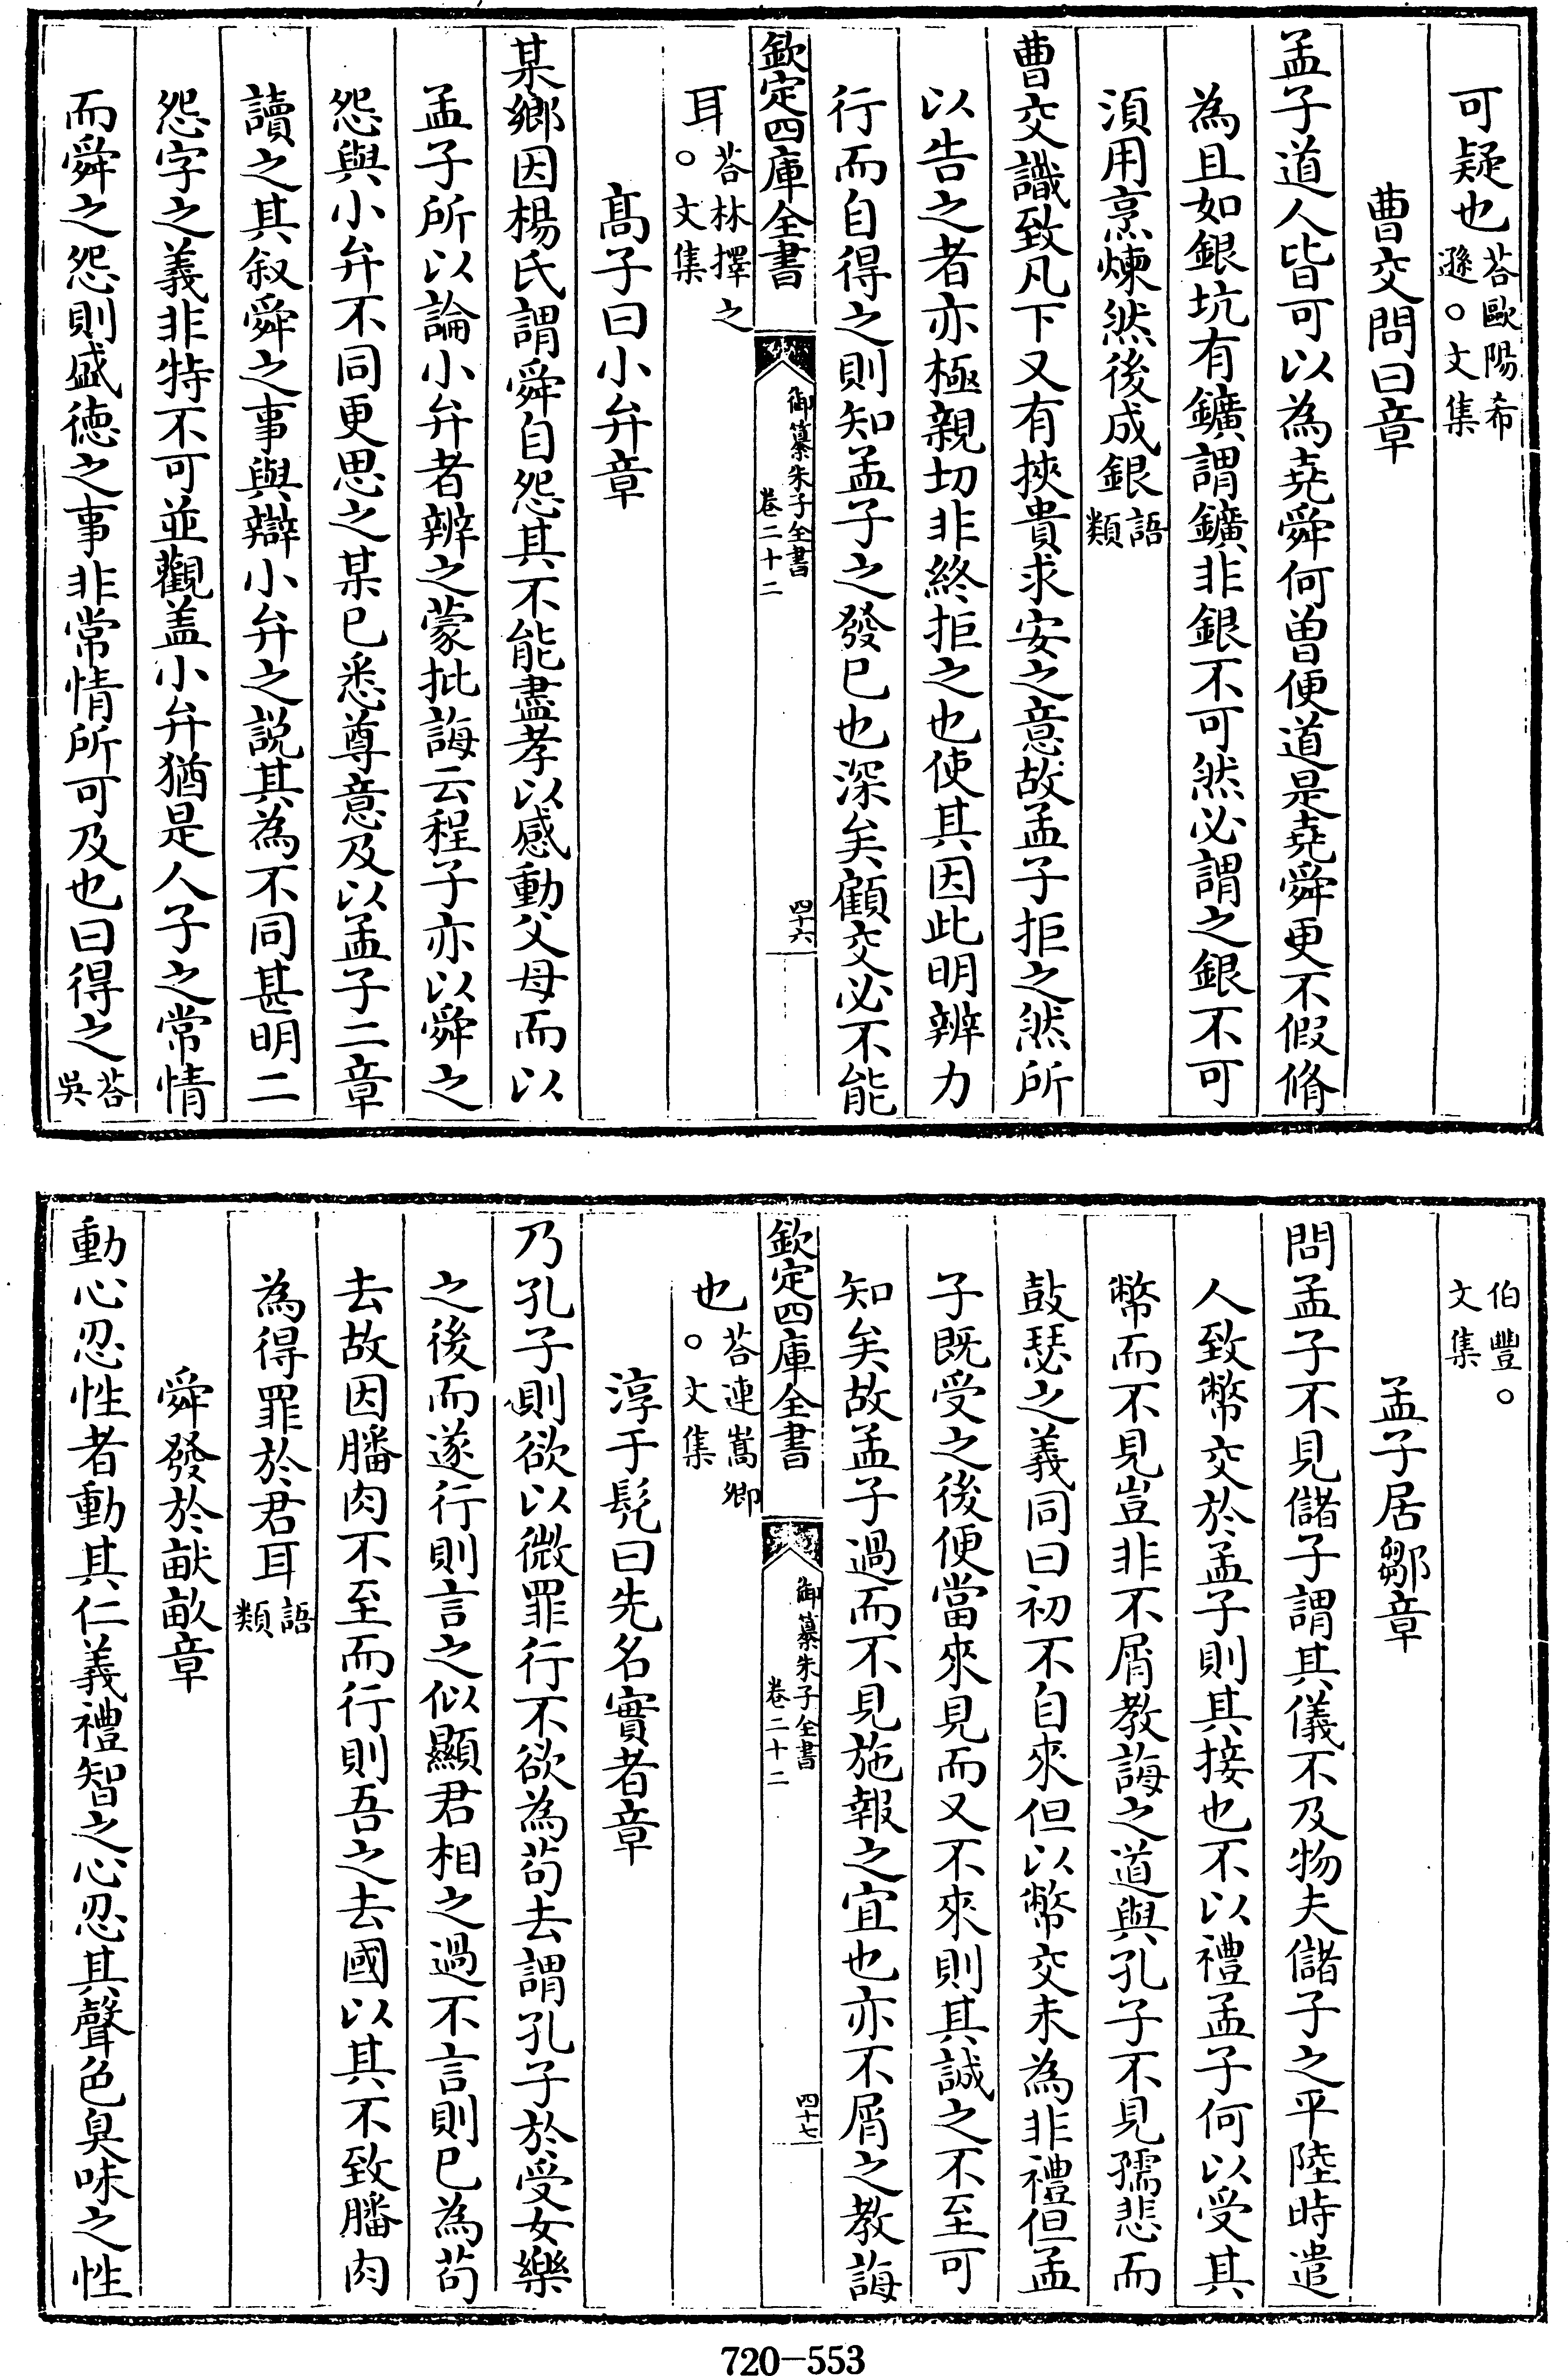 可疑也荅歐陽希遜○文集
曹交問曰章
孟子道人皆可以為堯舜何曽便道是堯舜更不假脩
為且如銀坑有鑛謂鑛非銀不可然必謂之銀不可
湏用烹煉然後成銀語類
曹交識致凡下又有挾貴求安之意故孟子拒之然所
以告之者亦極親切非終拒之也使其因此明辨力
行而自得之則知孟子之發已也深矣顧交必不能
欽定四庫全書
御纂朱子全書
卷二十二
四十六
耳荅林擇之○文集
髙子曰小弁章
某鄉因楊氏謂舜自怨其不能盡孝以感動父母而以
孟子所以論小弁者辨之蒙批誨云程子亦以舜之
怨與小弁不同更思之某已悉尊意及以孟子二章
讀之其叙舜之事與辯小弁之説其為不同甚明二
怨字之義非特不可並觀盖小弁猶是人子之常情
而舜之怨則盛徳之事非常情所可及也曰得之荅吳
伯豐○文集
孟子居鄒章
問孟子不見儲子謂其儀不及物夫儲子之平陸時遣
人致幣交於孟子則其接也不以禮孟子何以受其
幣而不見豈非不屑教誨之道與孔子不見孺悲而
鼓瑟之義同曰初不自來但以幣交未為非禮但孟
子既受之後便當來見而又不來則其誠之不至可
知矣故孟子過而不見施報之宜也亦不屑之教誨
欽定四庫全書
御纂朱子全書
卷二十二
四十七
也荅連嵩卿○文集
淳于髠曰先名實者章
乃孔子則欲以微罪行不欲為茍去謂孔子於受女樂
之後而遂行則言之似顯君相之過不言則已為茍
去故因膰肉不至而行則吾之去國以其不致膰肉
為得罪於君耳語類
舜發於畎畝章
動心忍性者動其仁義禮智之心忍其聲色臭味之性
720-553